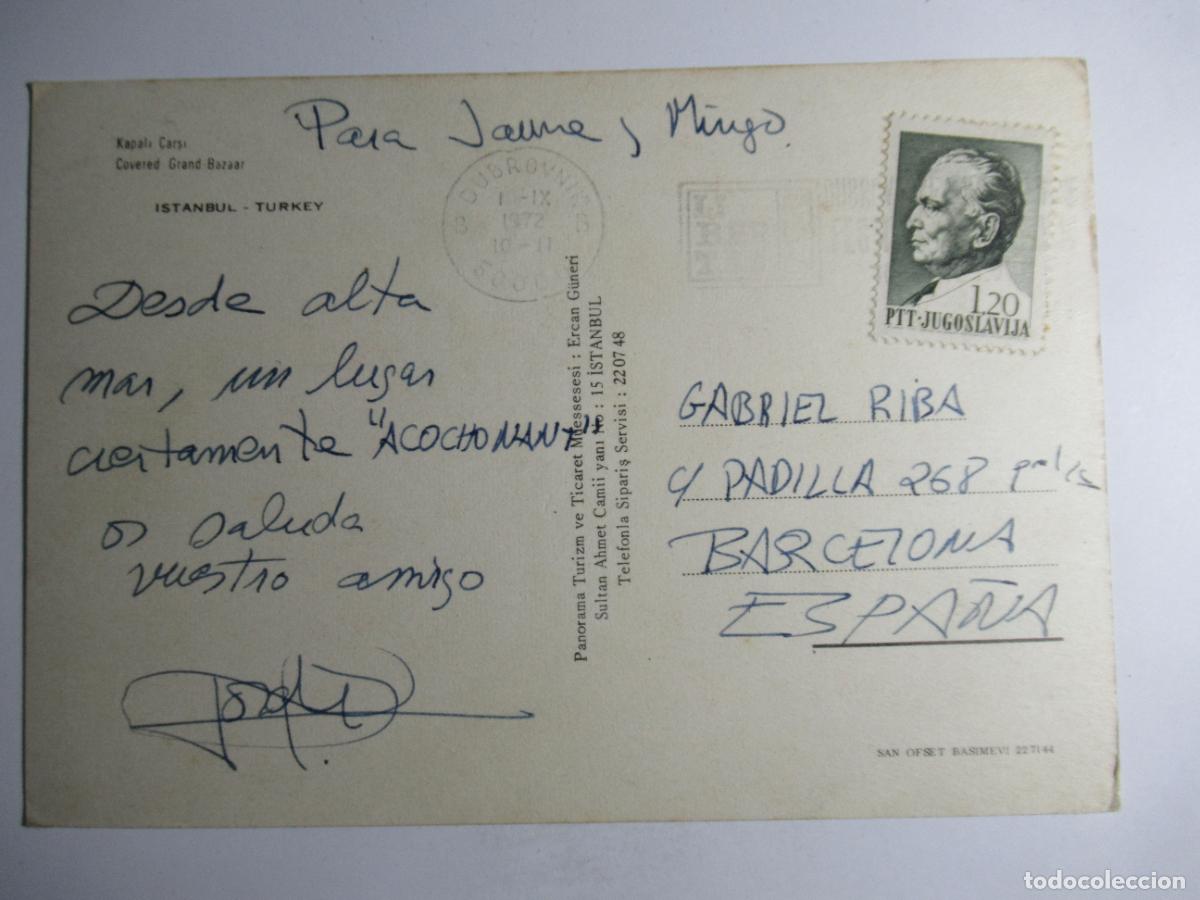 Para Jaume y Mingo.
Kapalı Çarşı
Covered Grand Bazaar
ISTANBUL - TURKEY
DUBROVNIK
IX
1972
10-11
B B
Desde alta
mar, un lugar
ciertamente "ACOCHONANT"
os saluda
vuestro amigo
Jordi
Panorama Turizm ve Ticaret Müessesesi : Ercan Güneri
Sultan Ahmet Camii yanı No : 15 İSTANBUL
Telefonla Sipariş Servisi : 22 07 48
1.20
PTT-JUGOSLAVIJA
GABRIEL RIBA
C/ PADILLA 268
BARCELONA
ESPAÑA
SAN OFSET BASIMEVİ 22 71 44
todocoleccion